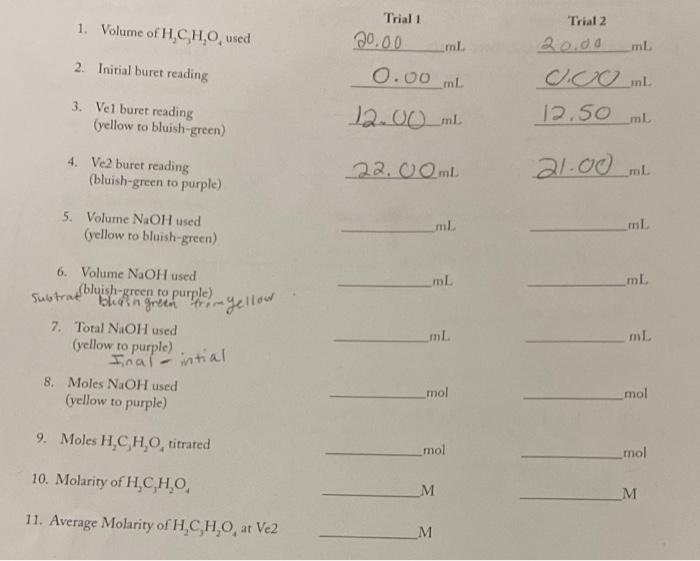 Trial 1 Trial 2
1. Volume of H₂C₃H₂O₄ used 20.00 mL 20.00 mL
2. Initial buret reading 0.00 mL 0.00 mL
3. Ve1 buret reading 12.00 mL 12.50 mL
(yellow to bluish-green)
4. Ve2 buret reading 22.00 mL 21.00 mL
(bluish-green to purple)
5. Volume NaOH used mL mL
(yellow to bluish-green)
6. Volume NaOH used mL mL
(bluish-green to purple)
green from yellow
7. Total NaOH used mL mL
(yellow to purple)
Final - intial
8. Moles NaOH used mol mol
(yellow to purple)
9. Moles H₂C₃H₂O₄ titrated mol mol
10. Molarity of H₂C₃H₂O₄ M M
11. Average Molarity of H₂C₃H₂O₄ at Ve2 M